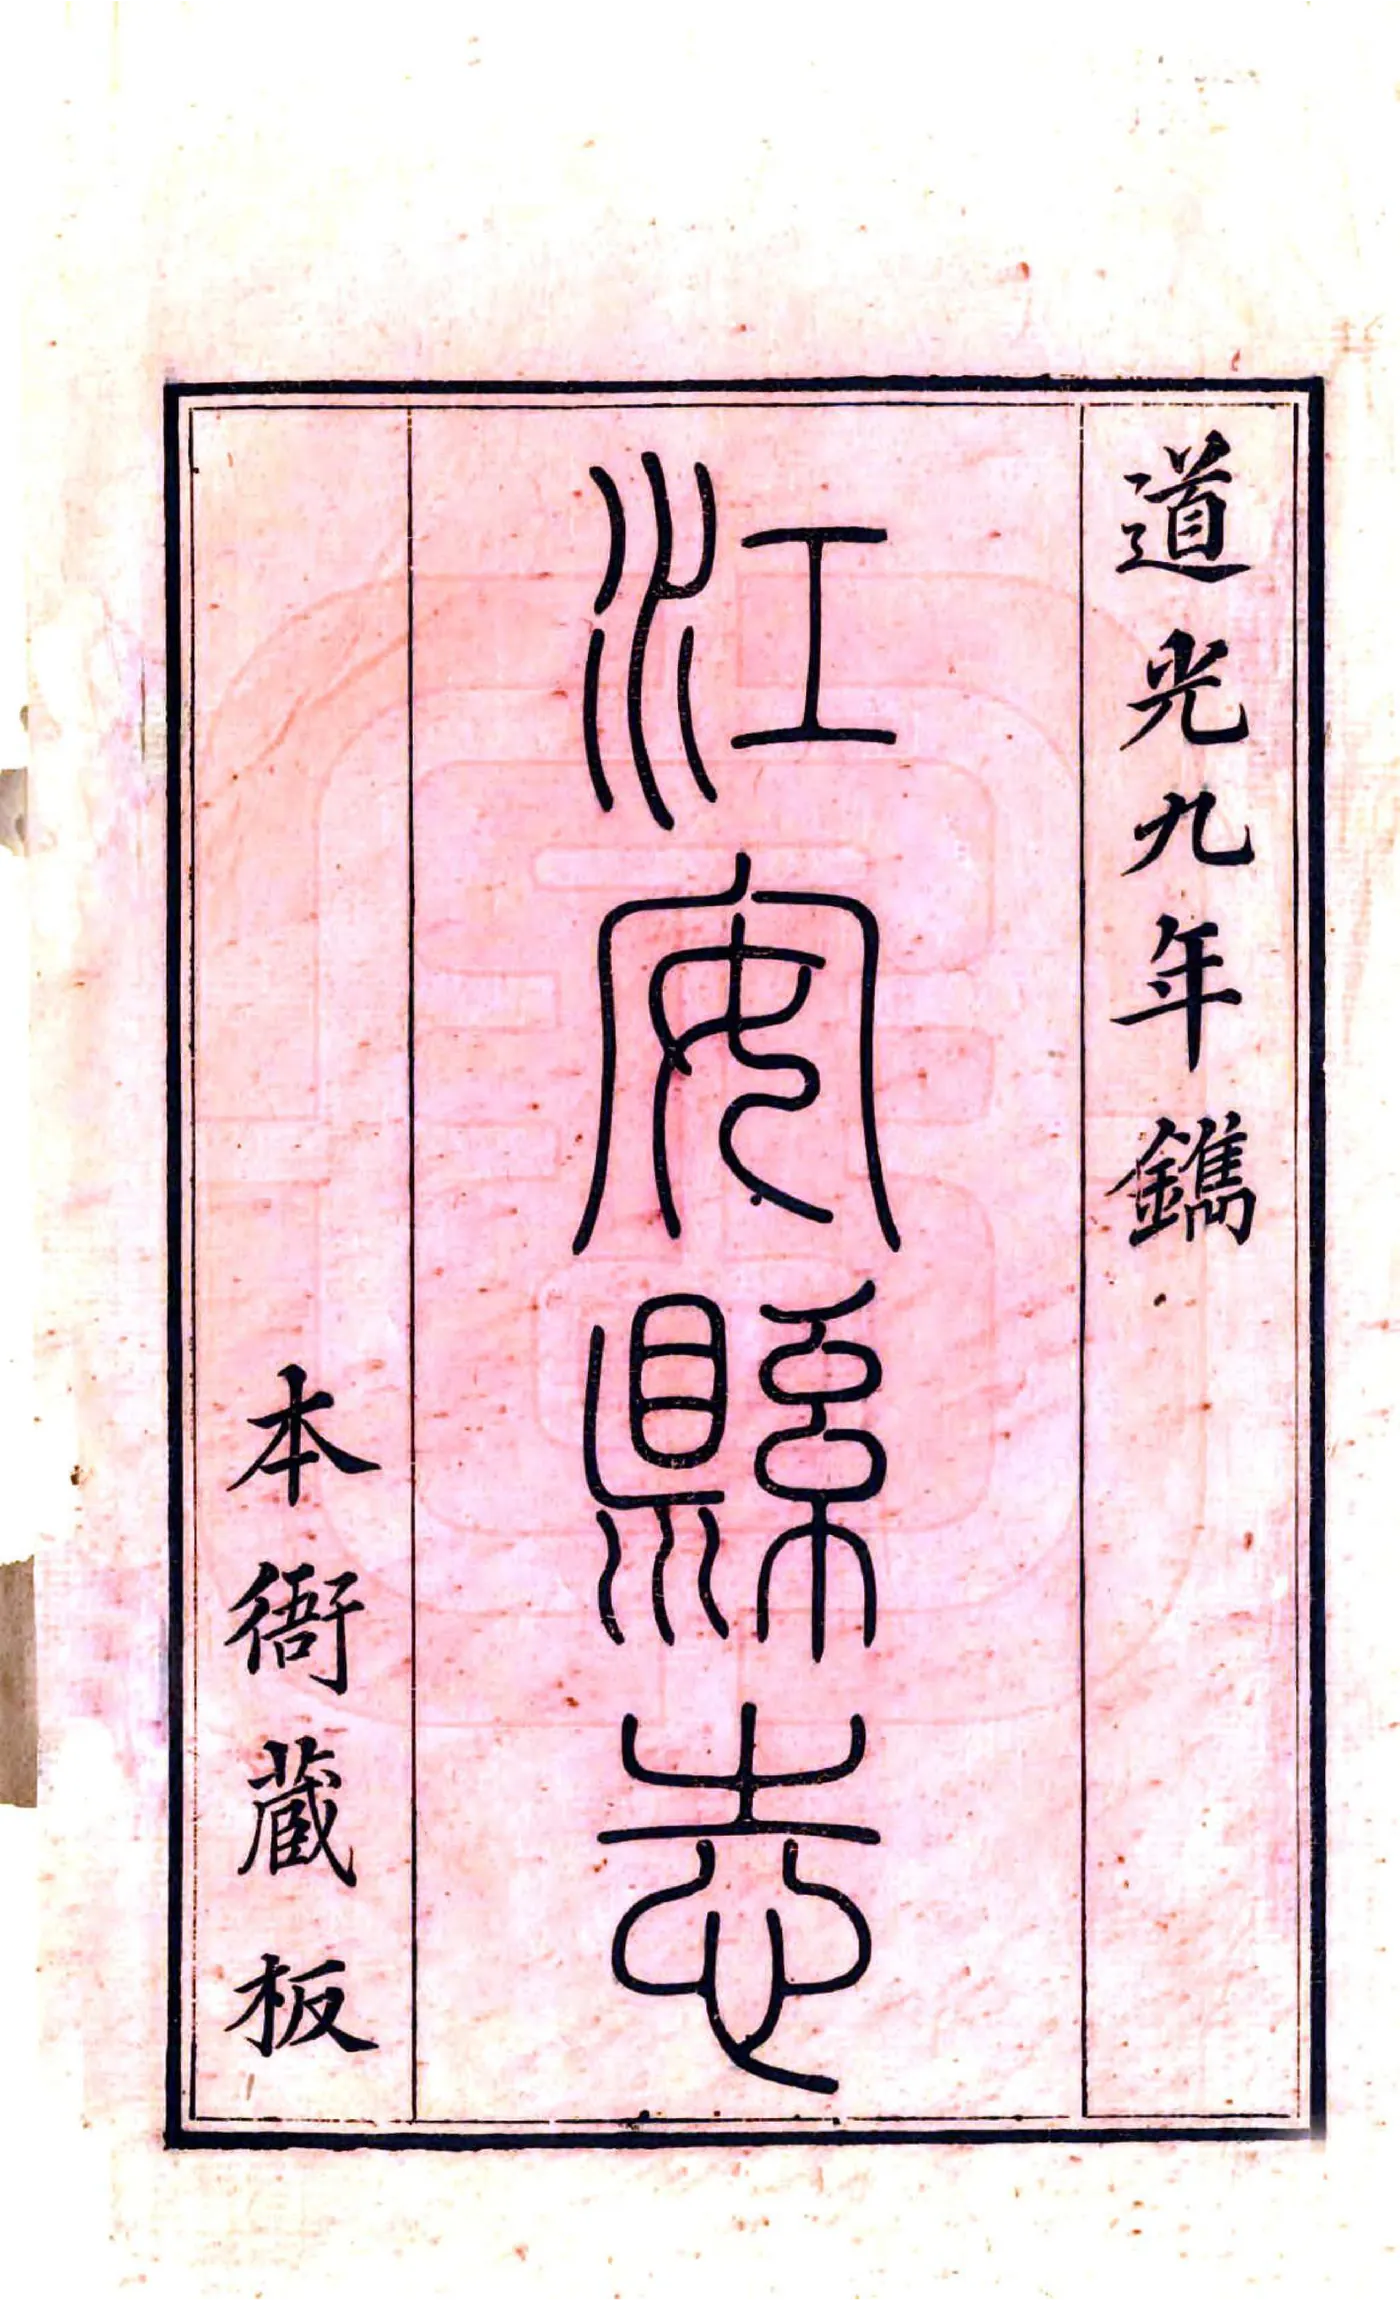 道光九年鐫
江安縣志
本衙蔵板